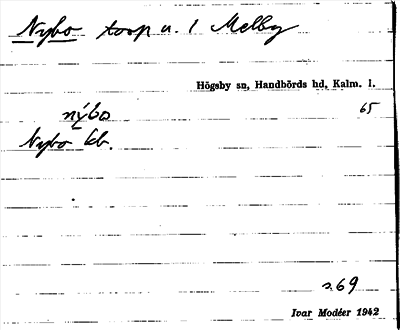 Nybo torp u. 1 Melby
Högsby sn, Handbörds hd, Kalm. l.
nýbo 65
Nybo kb.
s. 69
Ivar Modéer 1942